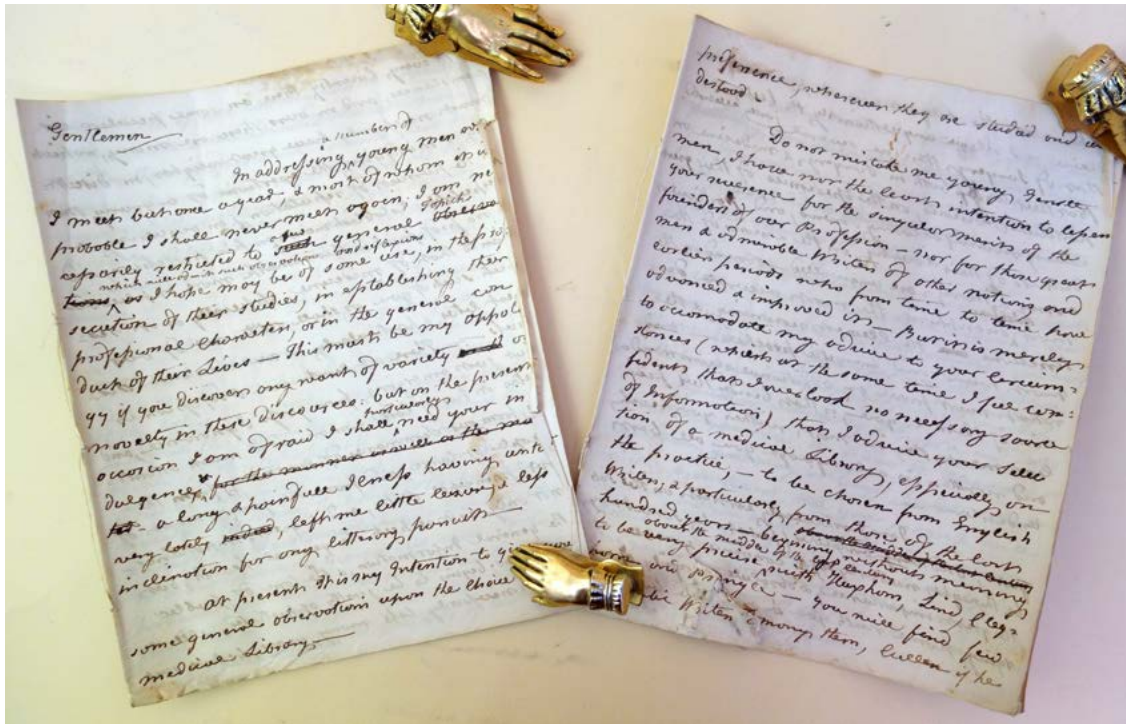 Gentlemen
a number of
In addressing, young men
I meet but once a year, & most of whom
probable I shall never meet again, I am ne
cessarily restricted to a few such general Topick observa
which will admit such observations
tions, as I hope may be of some use, in the pro
secution of their studies, in establishing their
professional Character, or in the general con
duct of their Lives — This must be my appolo
gy if you discover any want of variety or
novelty in these discources: but on the present
particularly
occasion I am afraid I shall need your in
dulgence, for the manner as well as the
a long & painfull Ilness having untill
very lately indeed, left me little leisure & less
inclination for any litterary pursuits —
At present it is my Intention to
some general observations upon the choice
medical Library. —
preference, wherever they are studied and un
derstood.
Do not mistake me young Gentle
men, I have not the least intention to lessen
your reverence for the singular merits of the
founders of our Profession — nor for those great
men & admirable Writers of other nations and
earlier periods who from time to time have
advanced & improved it — But it is merely
to accomodate my advice to your circum-
stances (whilst at the same time I feel con-
fident that I overlook no necessary source
of Information), that I advise your selec
tion of a medical Library, especially on
the practice, — to be chosen from English
Writers, & particularly from those of the last
hundred years — beginning without meaning
about the middle of the last century
to be very precise with Huxham, Lind, Cleg-
horn and Pringle — you will find few
Writers among them, Cullen if he